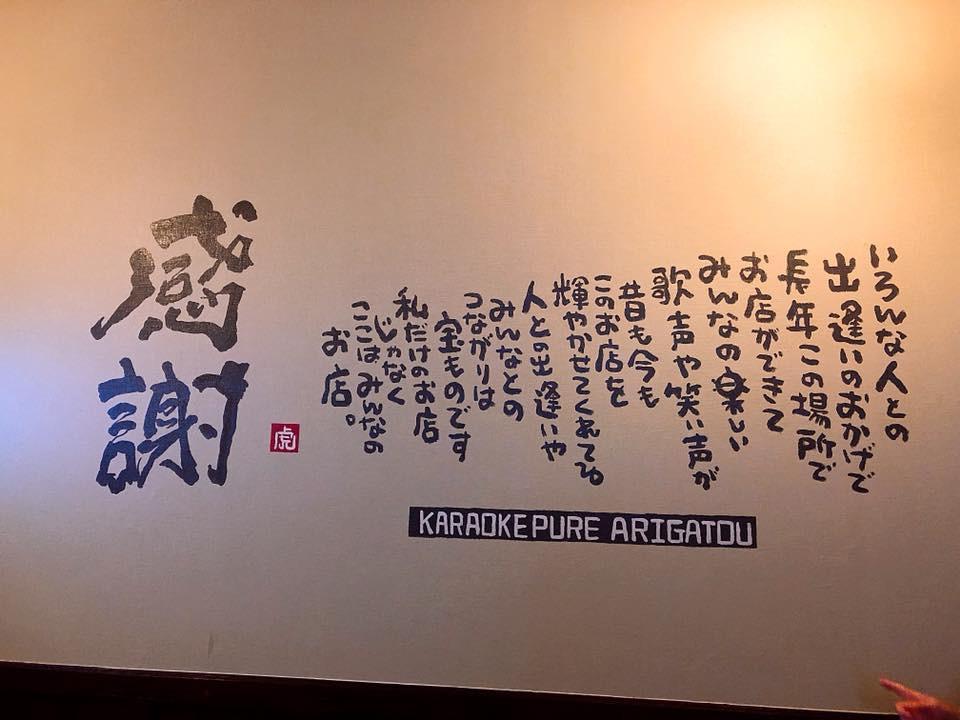 いろんな人との
出逢いのおかげで
長年この場所で
お店ができて
みんなの楽しい
歌声や笑い声が
昔も今も
このお店を
輝やかせてくれてる。
人との出逢いや
みんなとの
つながりは
宝ものです
私だけのお店
じゃなく
ここはみんなの
お店。
感謝
虎
KARAOKE PURE ARIGATOU